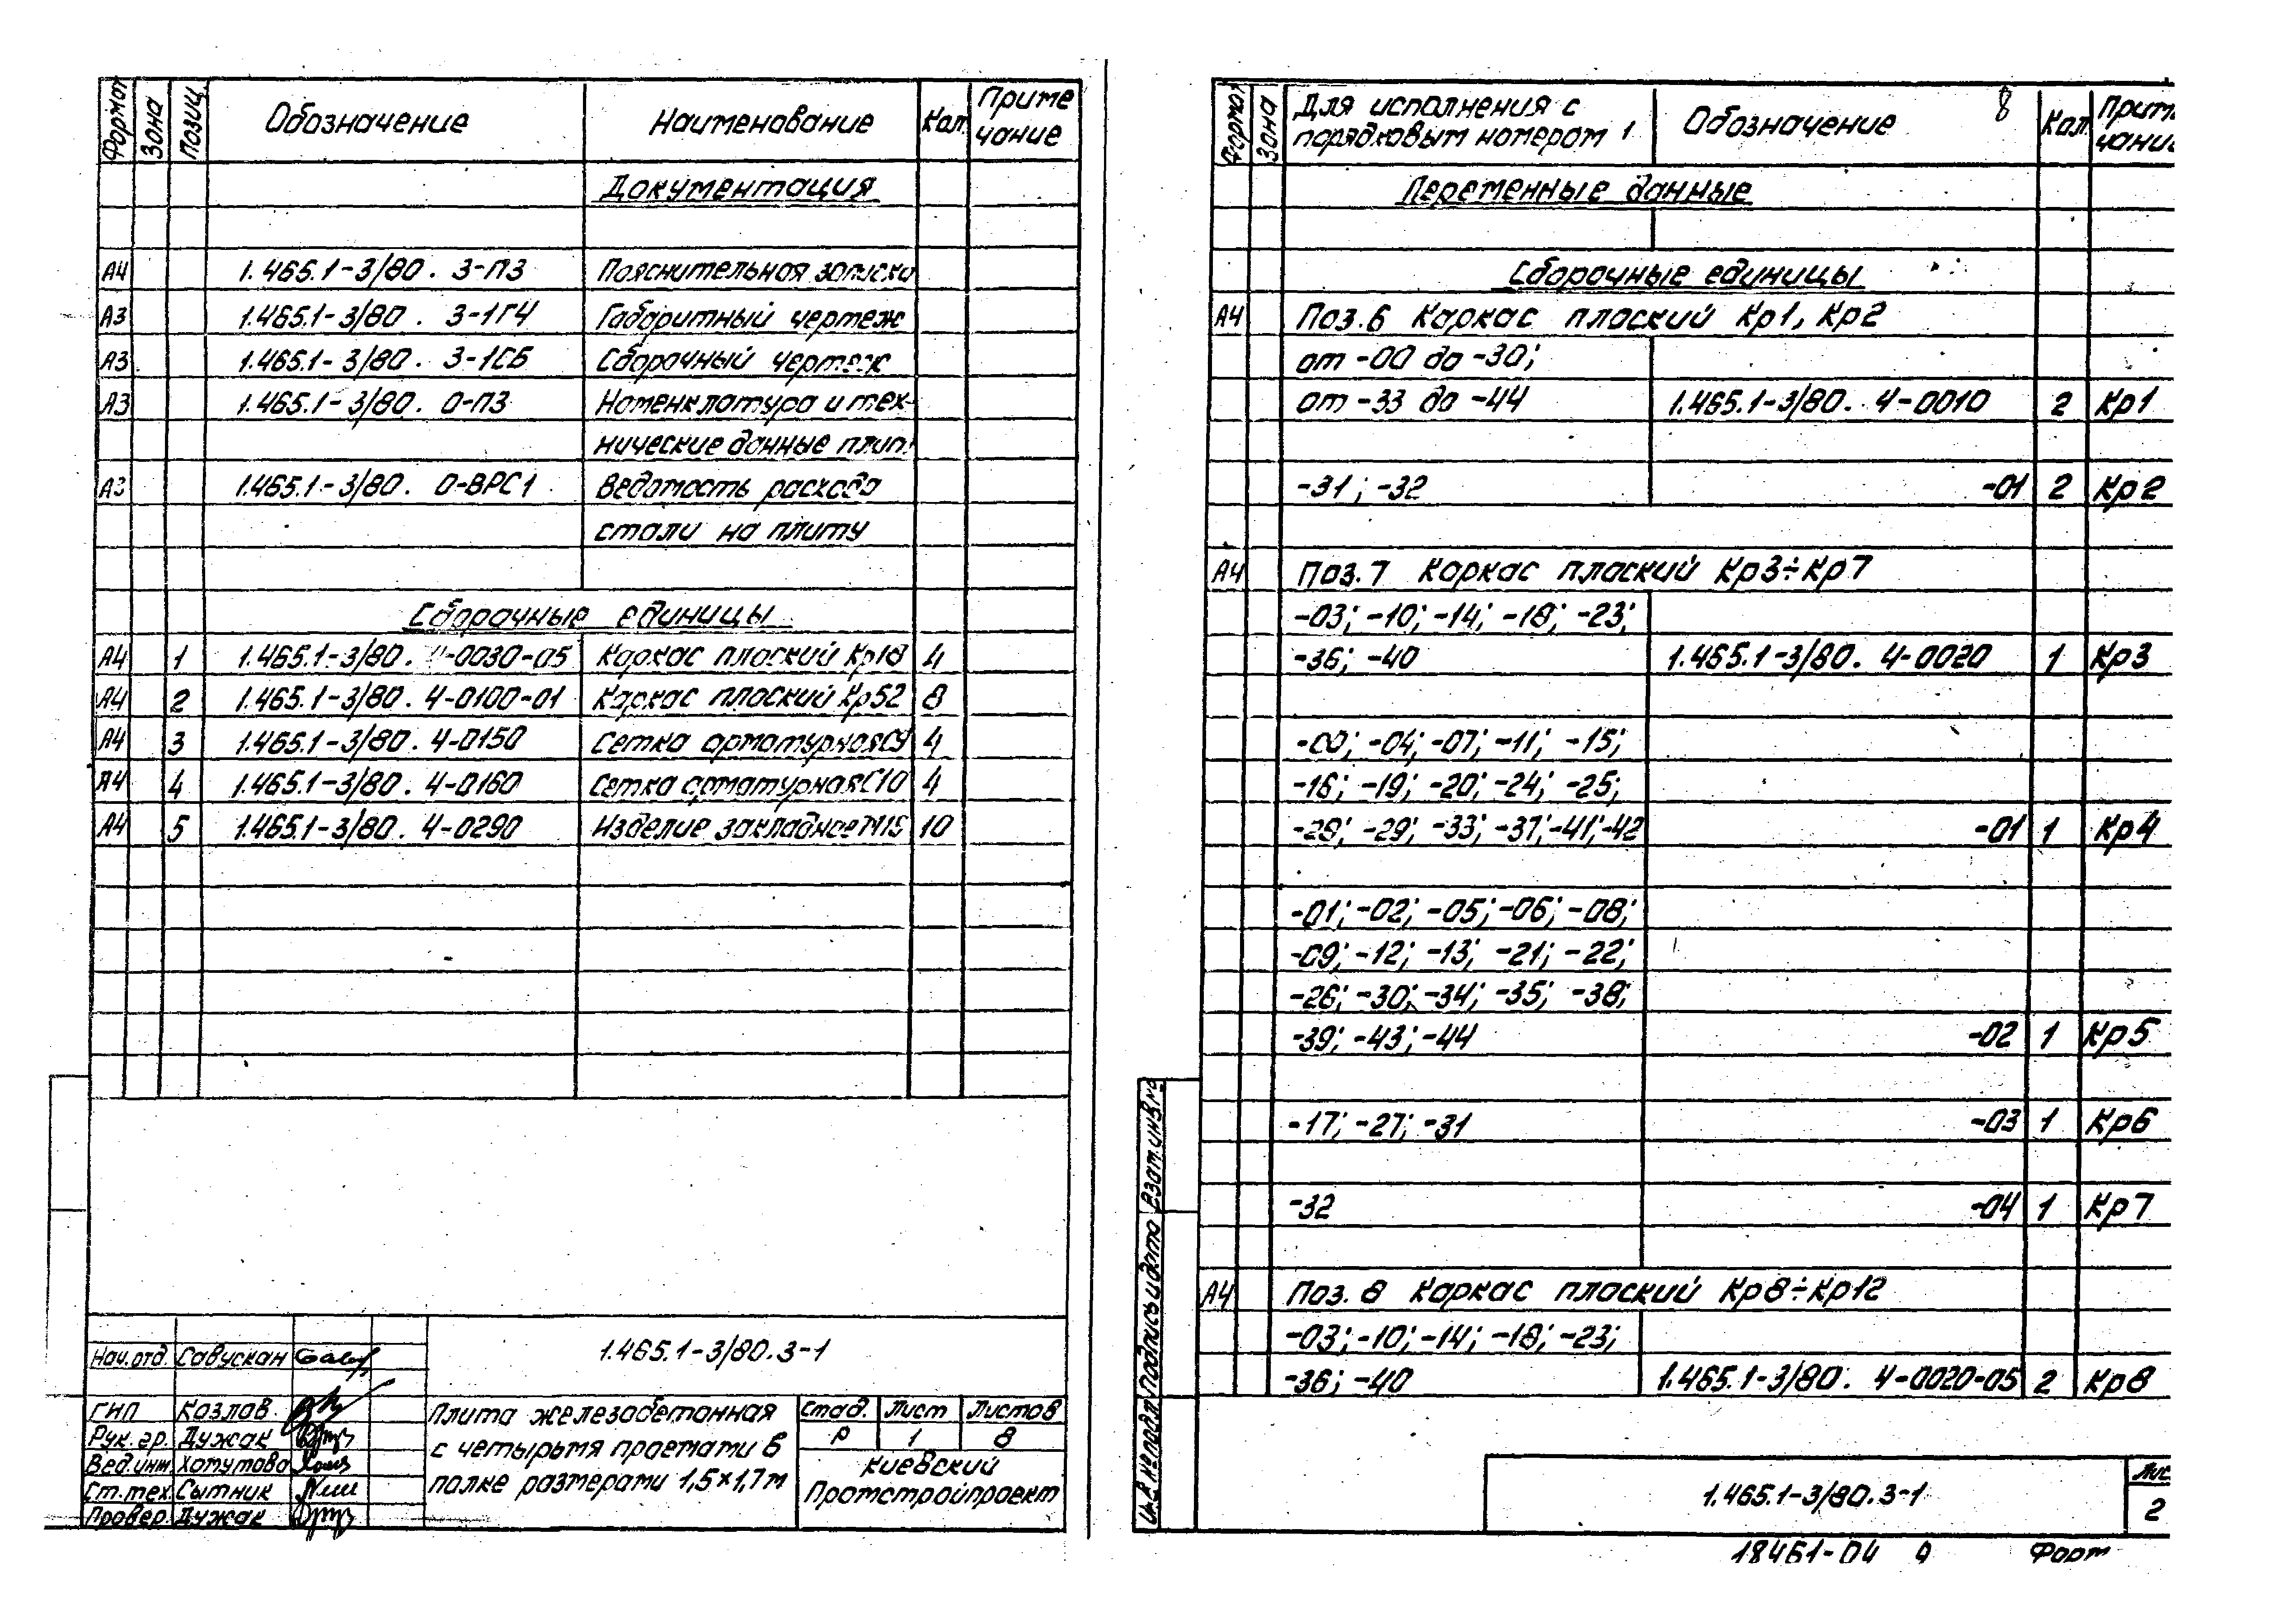 Формат Зона Позиц. Обозначение Наименование Кол. Приме
чание
Документация
А4 1.465.1-3/80. 3-ПЗ Пояснительная записка
А3 1.465.1-3/80. 3-1ГЧ Габаритный чертеж
А3 1.465.1-3/80. 3-1СБ Сборочный чертеж
А3 1.465.1-3/80. 0-ПЗ Номенклатура и тех-
нические данные плит.
А3 1.465.1-3/80. 0-ВРС1 Ведомость расхода
стали на плиту
Сборочные единицы
А4 1 1.465.1-3/80. 4-0030-05 Каркас плоский Кр18 4
А4 2 1.465.1-3/80. 4-0100-01 Каркас плоский Кр52 8
А4 3 1.465.1-3/80. 4-0150 Сетка арматурная С9 4
А4 4 1.465.1-3/80. 4-0160 Сетка арматурная С10 4
А4 5 1.465.1-3/80. 4-0290 Изделие закладное М15 10
1.465.1-3/80.3-1
Нач.отд. Савускан
ГИП Козлов
Рук.гр. Дужак
Вед.инж. Хомутова
Ст.тех. Сытник
Провер. Дужак
Плита железобетонная
с четырьмя проемами в
полке размерами 1,5×1,7м
Стад. Лист Листов
Р 1 8
Киевский
Промстройпроект
8
Формат Зона Для исполнения с
порядковым номером 1 Обозначение Кол. Прим
чани
Переменные данные
Сборочные единицы
А4 Поз.6 Каркас плоский Кр1, Кр2
от -00 до -30;
от -33 до -44 1.465.1-3/80. 4-0010 2 Кр1
-31; -32 -01 2 Кр2
А4 Поз.7 Каркас плоский Кр3÷Кр7
-03; -10; -14; -18; -23;
-36; -40 1.465.1-3/80. 4-0020 1 Кр3
-00; -04; -07; -11; -15;
-16; -19; -20; -24; -25;
-28; -29; -33; -37; -41; -42 -01 1 Кр4
-01; -02; -05; -06; -08;
-09; -12; -13; -21; -22;
-26; -30; -34; -35; -38;
-39; -43; -44 -02 1 Кр5
-17; -27; -31 -03 1 Кр6
-32 -04 1 Кр7
А4 Поз. 8 Каркас плоский Кр8÷Кр12
-03; -10; -14; -18; -23;
-36; -40 1.465.1-3/80. 4-0020-05 2 Кр8
Инв.№подл. Подпись и дата Взам.инв.№
1.465.1-3/80.3-1 Лис
2
18461-04 9 Форм